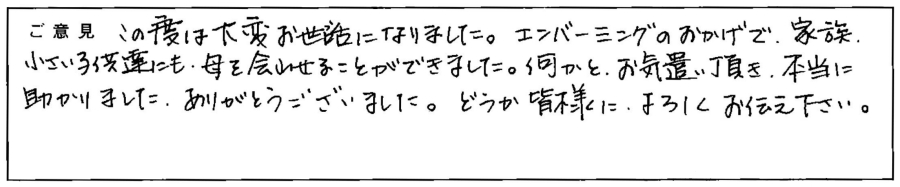 ご意見 この度は大変お世話になりました。エンバーミングのおかげで、家族、
小さい子供達にも、母を会わせることができました。何かと、お気遣い頂き、本当に
助かりました、ありがとうございました。どうか皆様に、よろしくお伝え下さい。